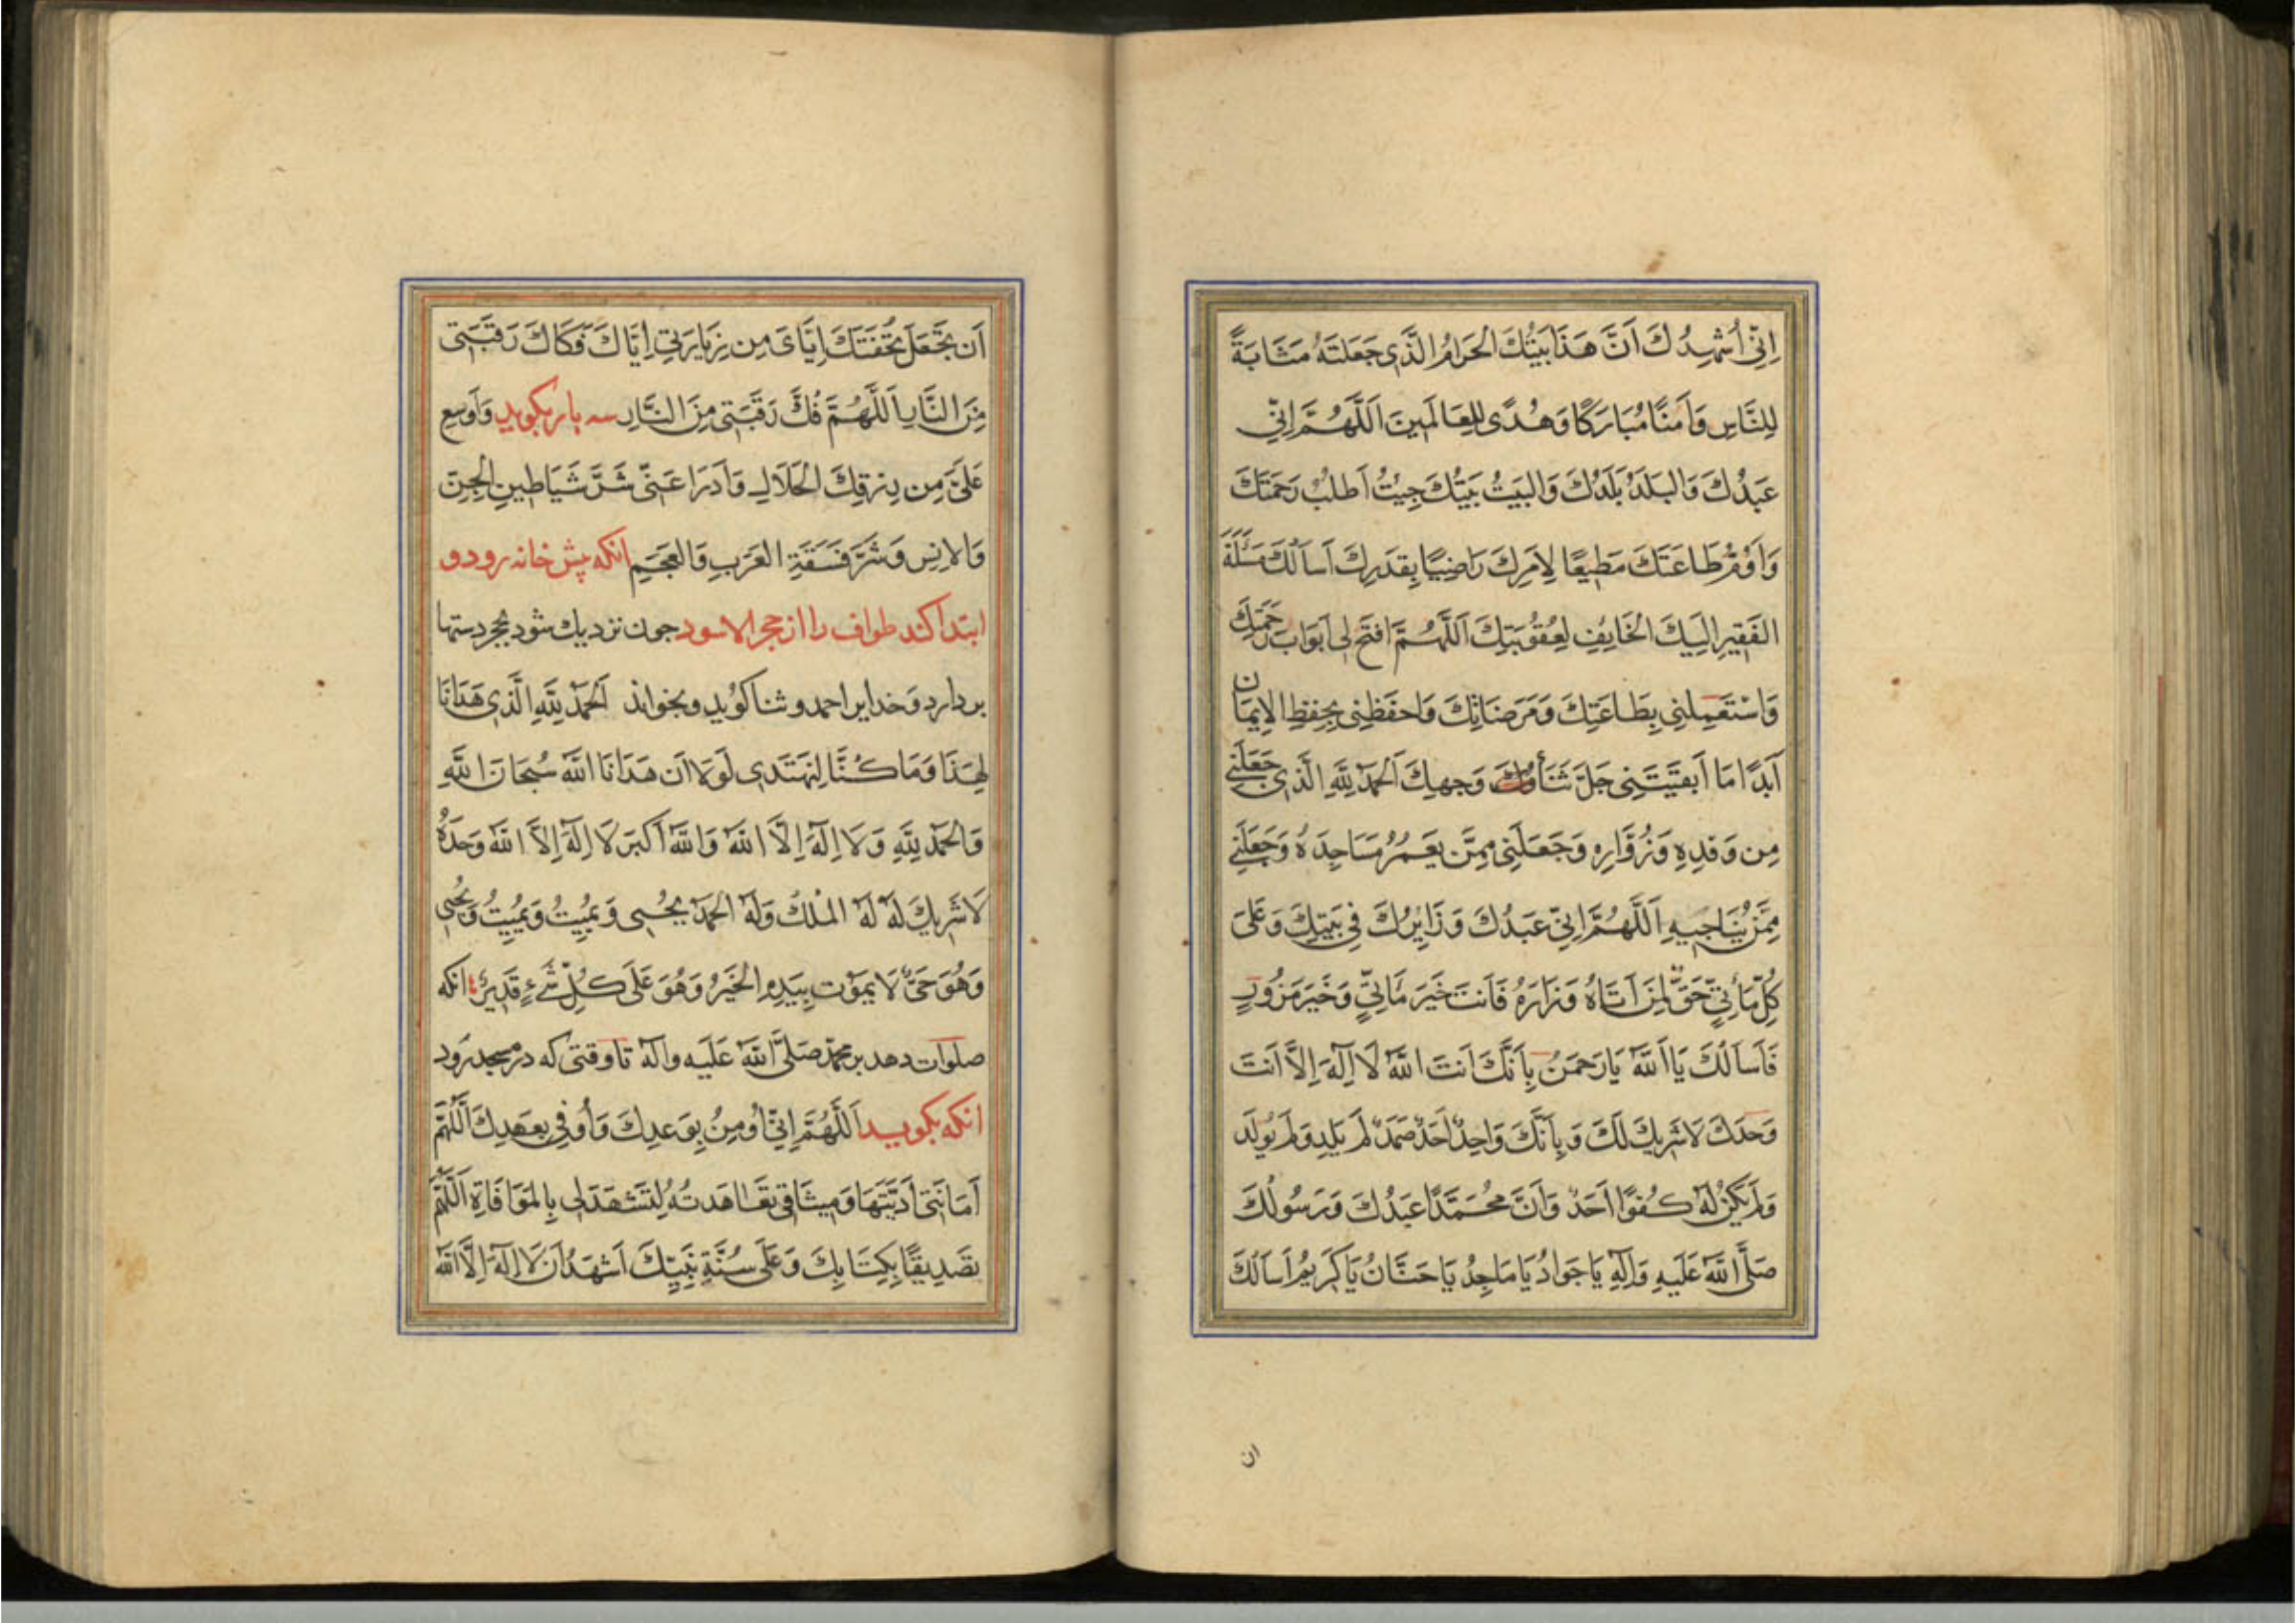 اِنّي اُشْهِدُكَ اَنَّ هَذَا بَيْتُكَ الْحَرَامُ الَّذِي جَعَلتَهُ مَثَابَةً
لِلنَّاسِ وَاَمنًا مُبَارَكًا وَهُدًى لِلعَالَمِينَ اَللَّهُمَّ اِنّي
عَبْدُكَ وَالبَلَدُ بَلَدُكَ وَالبَيتُ بَيتُكَ جِيْتُ اَطلبُ رَحمَتَكَ
وَاَؤمُّ طَاعَتَكَ مُطِيعًا لِاَمرِكَ رَاضِيًا بِقَدَرِكَ اَسأَلُكَ مَسْئَلَةَ
الفَقِيرِ اِلَيكَ الخَايِفِ لِعُقُوبَتِكَ اَللَّهُمَّ افتَح لِى اَبوَابَ رَحمَتِكَ
وَاسْتَعمِلنِي بِطَاعَتِكَ وَمَرضَاتِكَ وَاحفَظنِى بِحِفظِ الاِيمَان
اَبَدًا مَا اَبقَيتَنِى جَلَّ ثَنَاؤُ وَجهِكَ اَلحَمدُ لِلَّهِ الَّذِى جَعَلَنِي
مِن وَفدِهِ وَزُوَّارِهِ وَجَعَلَنِى مِمَّن يَعمُرُ مَسَاجِدَهُ وَجَعَلَنِي
مِمَّن يُنَاجِيهِ اَللَّهُمَّ اِنّي عَبدُكَ وَزَايِرُكَ فِي بَيتِكَ وَعَلَى
كُلِّ مَأتِيٍّ حَقٌّ لِمَن اَتَاهُ وَزَارَهُ فَاَنتَ خَيرُ مَأتِيٍّ وَخَيرُ مَزُورٍ
فَاَسأَلُكَ يَا اَللَّهُ يَا رَحمَنُ بِاَنَّكَ اَنتَ اللَّهُ لَا اِلَهَ اِلَّا اَنتَ
وَحدَكَ لَا شَرِيكَ لَكَ وَبِاَنَّكَ وَاحِدٌ اَحَدٌ صَمَدٌ لَم يَلِد وَلَم يُولَد
وَلَم يَكُن لَهُ كُفوًا اَحَدٌ وَاَنَّ مُحَمَّدًا عَبدُكَ وَرَسُولُكَ
صَلَّى اللَّهُ عَلَيهِ وَاَلِهِ يَا جَوَادُ يَا مَاجِدُ يَا حَنَّانُ يَا كَرِيمُ اَسأَلُكَ
ان
اَن تَجعَلَ تُحْفَتَكَ اِيَّاىَ مِن زِيَارَتِي اِيَّاكَ فَكَاكَ رَقَبَتِى
مِنَ النَّارِ اَللَّهُمَّ فُكَّ رَقَبَتِى مِنَ النَّارِ سه بار بكويد وَاَوسِع
عَلَيَّ مِن رِزقِكَ الحَلَالِ وَادرَا عَنِّى شَرَّ شَيَاطِينِ الجِنِّ
وَالاِنسِ وَشَرَّ فَسَقَةِ العَرَبِ وَالعَجَمِ انكه پيش خانه رود و
ابتدا كند طواف را از حجر الاسود جون نزديك شود بحجر دستها
بر دارد وخدايرا حمد و ثنا كويد وبخواند اَلحَمدُ لِلَّهِ الَّذِى هَدَانَا
لِهَذَا وَمَا كُنَّا لِنَهتَدِى لَولَا اَن هَدَانَا اللَّهُ سُبحَانَ اللَّهِ
وَالحَمدُ لِلَّهِ وَلَا اِلَهَ اِلَّا اللَّهُ وَاللَّهُ اَكبَرُ لَا اِلَهَ اِلَّا اللَّهُ وَحدَهُ
لَا شَرِيكَ لَهُ لَهُ المُلكُ وَلَهُ الحَمدُ يُحيِى وَيُمِيتُ وَيُمِيتُ وَيُحيِى
وَهُوَ حَيٌّ لَا يَمُوتُ بِيَدِهِ الخَيرُ وَهُوَ عَلَى كُلِّ شَيءٍ قَدِيرٌ انكه
صلوات دهد بر محمد صَلَّى اللَّهُ عَلَيهِ وآله تا وقتى كه در مسجد رود
انكه بكويد اَللَّهُمَّ اِنِّي اُومِنُ بِوَعدِكَ وَاُوفِي بِعَهدِكَ اَللَّهُمَّ
اَمَانَتِى اَدَّيتُهَا وَمِيثَاقِى تَعَاهَدتُهُ لِتَشهَدَ لِى بِالمُوَافَاةِ اَللَّهُمَّ
تَصدِيقًا بِكِتَابِكَ وَعَلَى سُنَّةِ نَبِيِّكَ اَشهَدُ اَن لَا اِلَهَ اِلَّا اللَّهُ